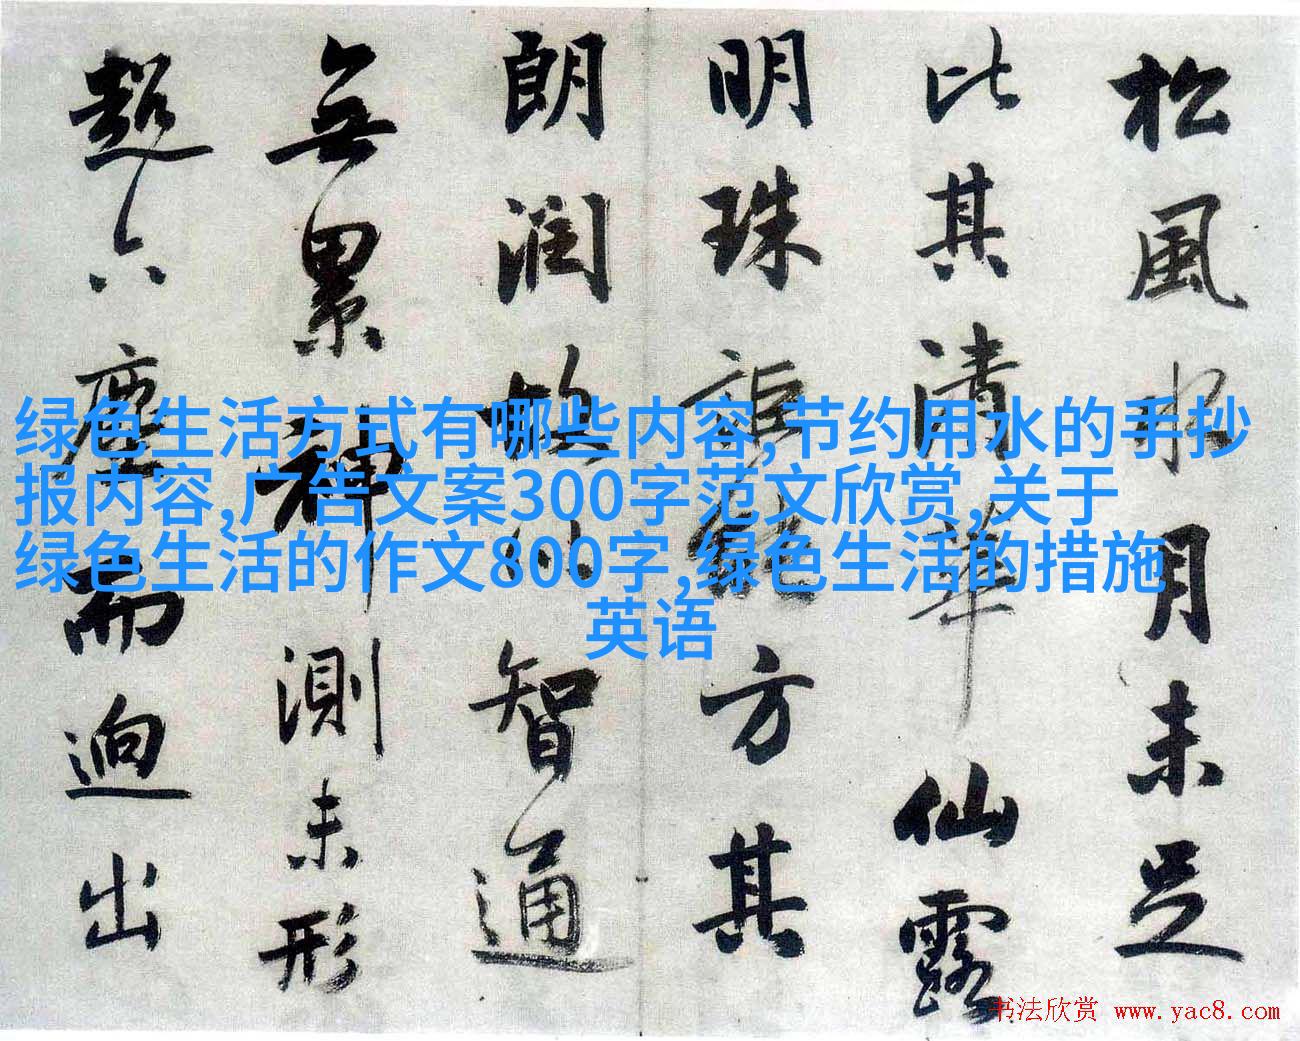 松風水月未足
比其清華仙露
明珠詎能方其
朗潤故以智通
無累神測未形
超六塵而迥出
绿色生活方式有哪些内容,节约用水的手抄
报内容,广告文案300字范文欣赏,关于
绿色生活的作文800字,绿色生活的措施
英语
书法欣赏 www.yac8.com